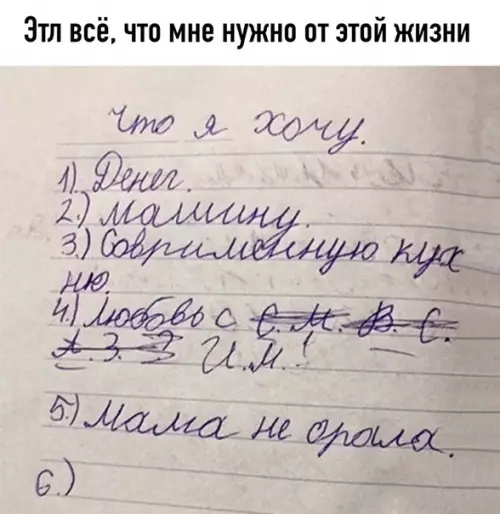 Этл всё, что мне нужно от этой жизни
Что я хочу.
1) Денег.
2.) Машину.
3.) Современную кух
ню.
4.) Любовь с С. М. В. С.
А. З. З И.М.!
5.) Мама не орала.
6.)